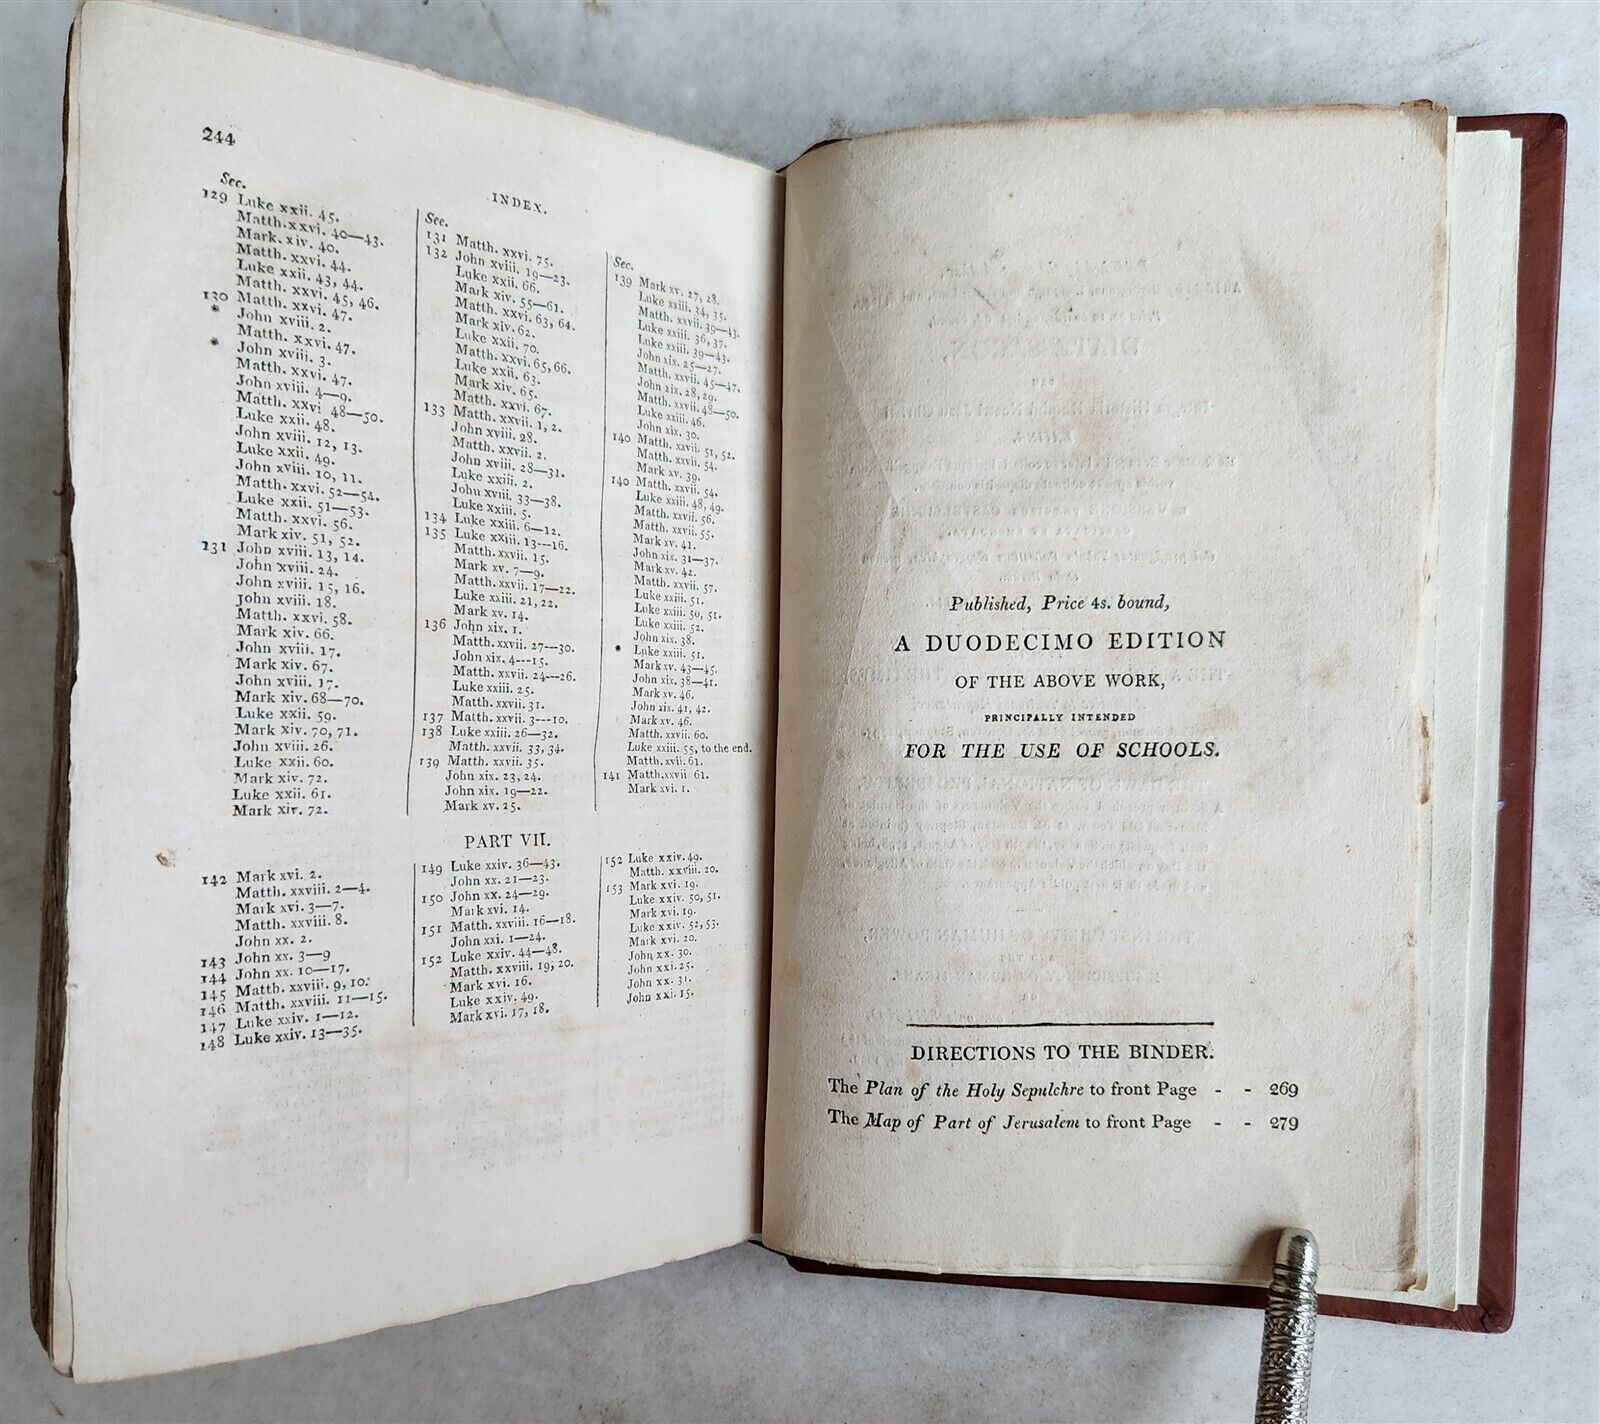 244
INDEX.
Sec.
129 Luke xxii. 45.
Matth. xxvi. 40—43.
Mark. xiv. 40.
Matth. xxvi. 44.
Luke xxii. 43, 44.
Matth. xxvi. 45, 46.
130 Matth. xxvi. 47.
* John xviii. 2.
Matth. xxvi. 47.
* John xviii. 3.
Matth. xxvi. 47.
John xviii. 4—9.
Matth. xxvi 48—50.
Luke xxii. 48.
John xviii. 12, 13.
Luke xxii. 49.
John xviii. 10, 11.
Matth. xxvi. 52—54.
Luke xxii. 51—53.
Matth. xxvi. 56.
Mark xiv. 51, 52.
131 John xviii. 13, 14.
John xviii. 24.
John xviii. 15, 16.
John xviii. 18.
Matth. xxvi. 58.
Mark xiv. 66.
John xviii. 17.
Mark xiv. 67.
John xviii. 17.
Mark xiv. 68—70.
Luke xxii. 59.
Mark xiv. 70, 71.
John xviii. 26.
Luke xxii. 60.
Mark xiv. 72.
Luke xxii. 61.
Mark xiv. 72.
Sec.
131 Matth. xxvi. 75.
132 John xviii. 19—23.
Luke xxii. 66.
Mark xiv. 55—61.
Matth. xxvi. 63, 64.
Mark xiv. 62.
Luke xxii. 70.
Matth. xxvi. 65, 66.
Luke xxii. 63.
Mark xiv. 65.
Matth. xxvi. 67.
133 Matth. xxvii. 1, 2.
John xviii. 28.
Matth. xxvii. 2.
John xviii. 28—31.
Luke xxiii. 2.
John xviii. 33—38.
Luke xxiii. 5.
134 Luke xxiii. 6—12.
135 Luke xxiii. 13---16.
Matth. xxvii. 15.
Mark xv. 7—9.
Matth. xxvii. 17—22.
Luke xxiii. 21, 22.
Mark xv. 14.
136 John xix. 1.
Matth. xxvii. 27—30.
John xix. 4---15.
Matth. xxvii. 24---26.
Luke xxiii. 25.
Matth. xxvii. 31.
137 Matth. xxvii. 3---10.
138 Luke xxiii. 26—32.
Matth. xxvii. 33, 34.
139 Matth. xxvii. 35.
John xix. 23, 24.
John xix. 19—22.
Mark xv. 25.
Sec.
139 Mark xv. 27, 28.
Luke xxiii. 34, 35.
Matth. xxvii. 39—43.
Luke xxiii. 36, 37.
Luke xxiii. 39—43.
John xix. 25—27.
Matth. xxvii. 45—47.
John xix. 28, 29.
Matth. xxvii. 48—50.
Luke xxiii. 46.
John xix. 30.
140 Matth. xxvii. 51, 52.
Matth. xxvii. 54.
Mark xv. 39.
140 Matth. xxvii. 54.
Luke xxiii. 48, 49.
Matth. xxvii. 56.
Matth. xxvii. 55.
Mark xv. 41.
John xix. 31—37.
Mark xv. 42.
Matth. xxvii. 57.
Luke xxiii. 51.
Luke xxiii. 50, 51.
Luke xxiii. 52.
John xix. 38.
* Luke xxiii. 51.
Mark xv. 43—45.
John xix. 38—41.
Mark xv. 46.
John xix. 41, 42.
Mark xv. 46.
Matth. xxvii. 60.
Luke xxiii. 55, to the end.
Matth. xxvii. 61.
141 Matth. xxvii 61.
Mark xvi. 1.
PART VII.
142 Mark xvi. 2.
Matth. xxviii. 2—4.
Mark xvi. 3—7.
Matth. xxviii. 8.
John xx. 2.
143 John xx. 3—9
144 John xx. 10—17.
145 Matth. xxviii. 9, 10.
146 Matth. xxviii. 11—15.
147 Luke xxiv. 1—12.
148 Luke xxiv. 13—35.
149 Luke xxiv. 36—43.
John xx. 21—23.
150 John xx. 24—29.
Mark xvi. 14.
151 Matth. xxviii. 16—18.
John xxi. 1—24.
152 Luke xxiv. 44—48.
Matth. xxviii. 19, 20.
Mark xvi. 16.
Luke xxiv. 49.
Mark xvi. 17, 18.
152 Luke xxiv. 49.
Matth. xxviii. 20.
153 Mark xvi. 19.
Luke xxiv. 50, 51.
Mark xvi. 19.
Luke xxiv. 52, 53.
Mark xvi. 20.
John xx. 30.
John xxi. 25.
John xx. 31.
John xxi. 15.
Published, Price 4s. bound,
A DUODECIMO EDITION
OF THE ABOVE WORK,
PRINCIPALLY INTENDED
FOR THE USE OF SCHOOLS.
DIRECTIONS TO THE BINDER.
The Plan of the Holy Sepulchre to front Page - - 269
The Map of Part of Jerusalem to front Page - - 279